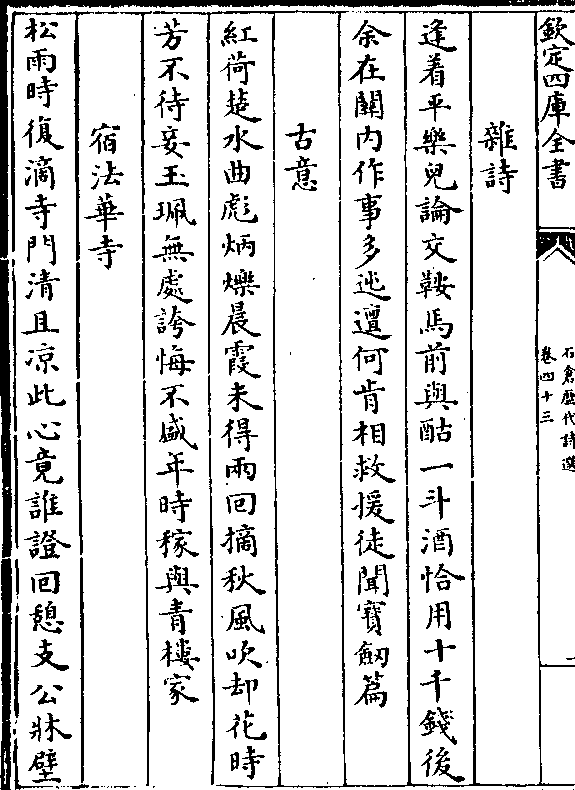 欽定四庫全書
石倉歷代詩選
卷四十三
雜詩
逢着平樂兒論交鞍馬前與酤一斗酒恰用十千錢後
余在關内作事多迍邅何肯相救援徒聞寶劒篇
古意
紅荷楚水曲彪炳爍晨霞未得兩回摘秋風吹却花時
芳不待妾玉珮無處誇悔不盛年時稼與青樓家
宿法華寺
松雨時復滴寺門清且凉此心竟誰證回憩支公牀壁